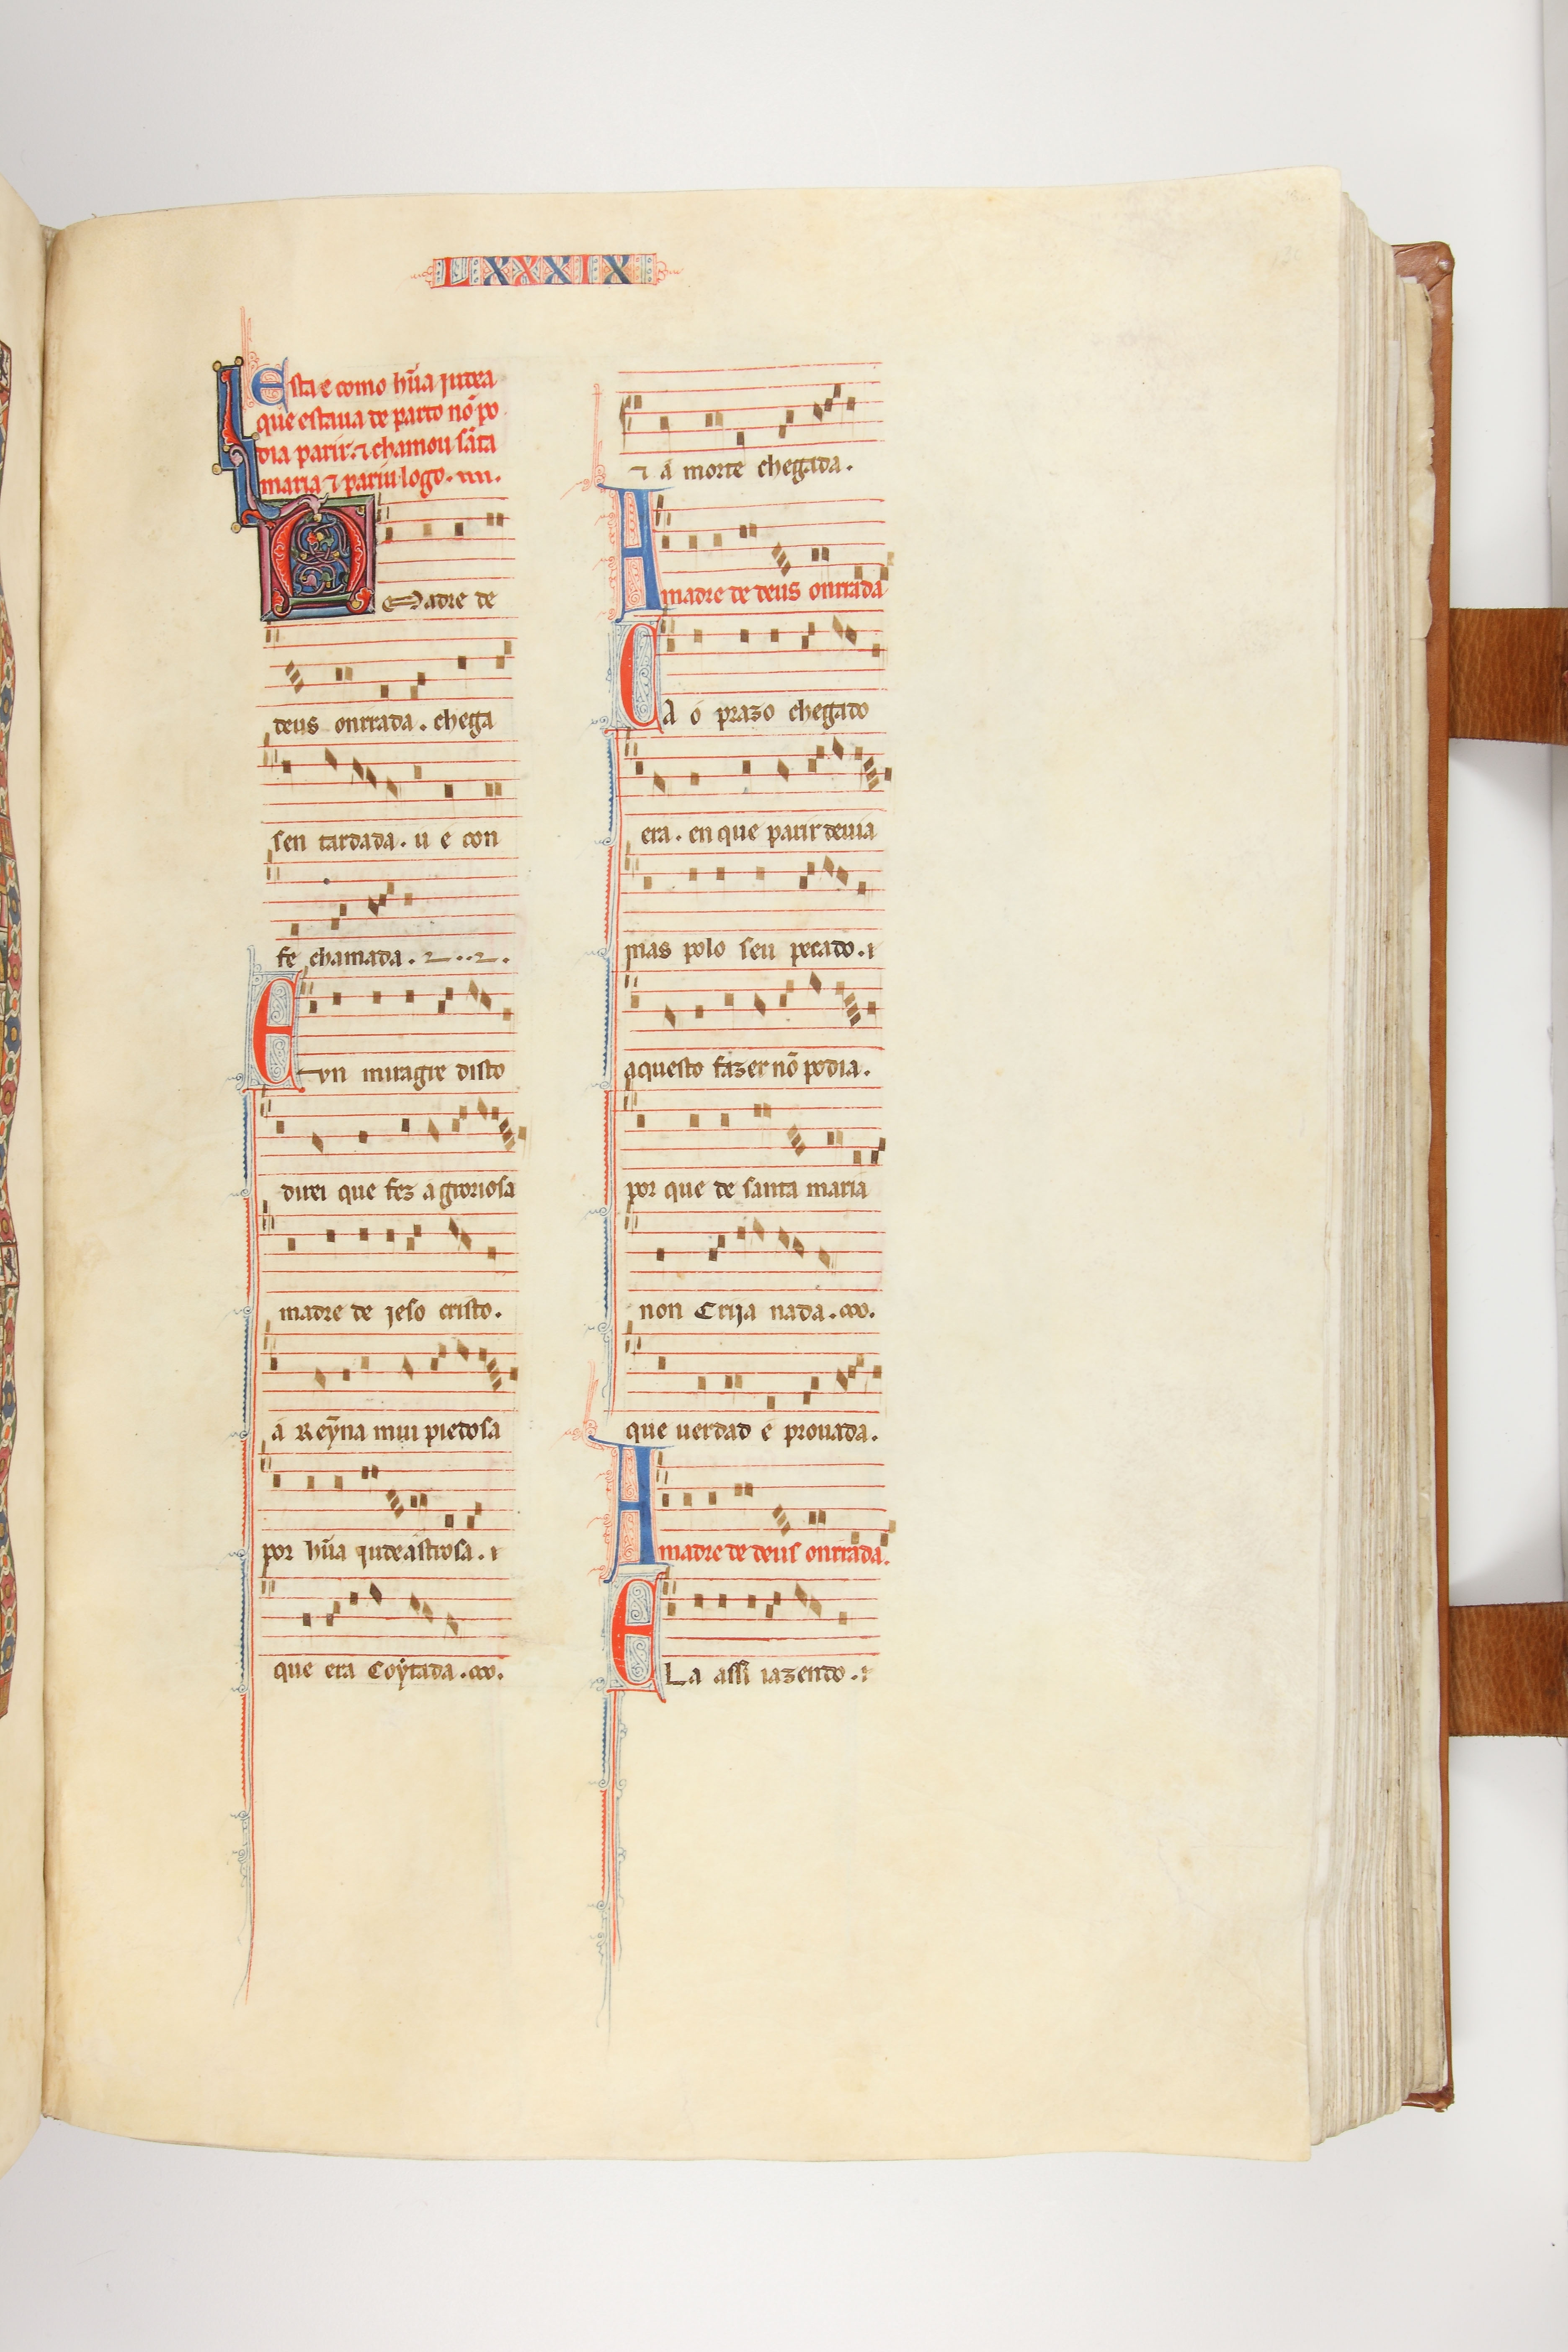 LXXXIX
Esta e como hũa judea
que estaua de parto nõ po
dia parir. ⁊ chamou sãta
maria ⁊ pariu logo.
A Madre de
deus onrrada. chega
sen tardada. u é con
fe chamada.
E un miragre disto
direi que fez a groriosa
madre de jeso cristo.
a Reỹna mui piedosa
por hũa judea astrosa.
que era Coytada.
⁊ á morte chegada.
A madre de deus onrrada
Ca o prazo chegado
era. en que parir deuia
mas polo seu pecado.
aquesto fazer nõ podia.
por que de santa maria
non Criya nada.
que uerdad é prouada.
A madre de deus onrrada.
Ela assi iazendo.